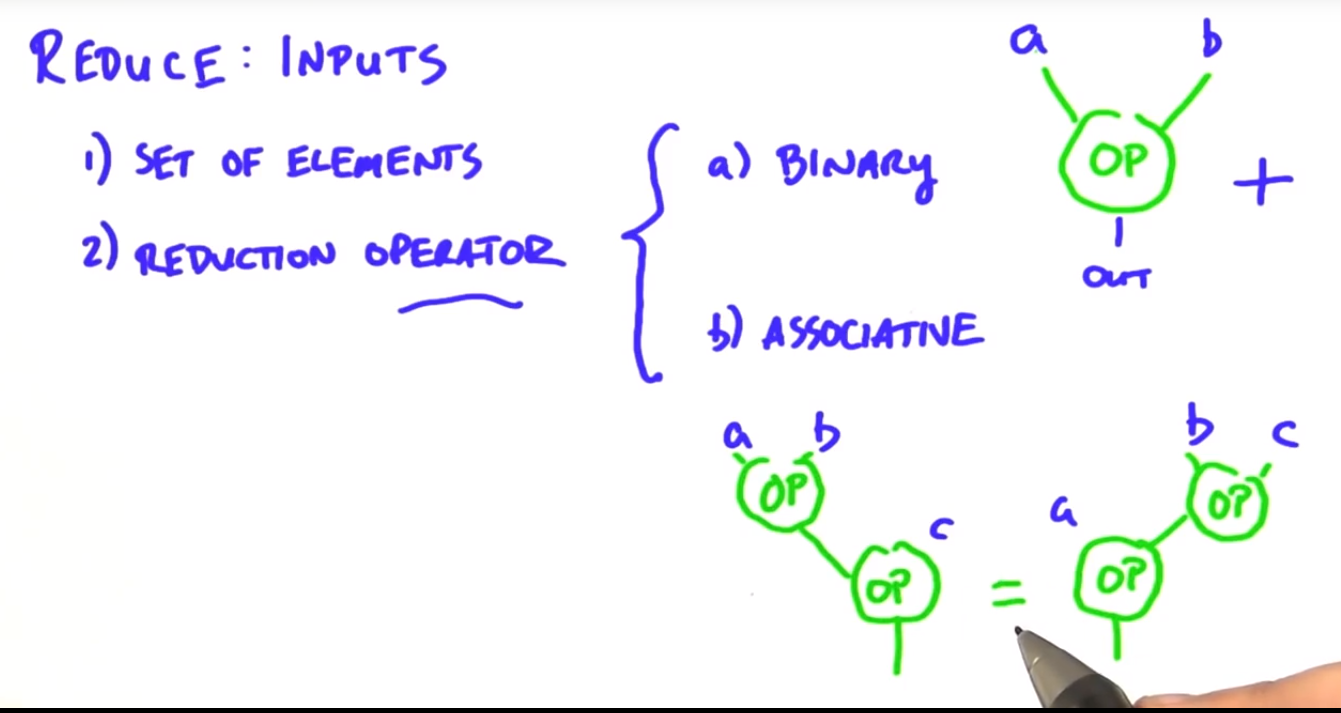 REDUCE: INPUTS
1) SET OF ELEMENTS
2) REDUCTION OPERATOR
a) BINARY
a b
OP
+
OUT
b) ASSOCIATIVE
a b
OP
c
OP
=
b c
OP
a
OP